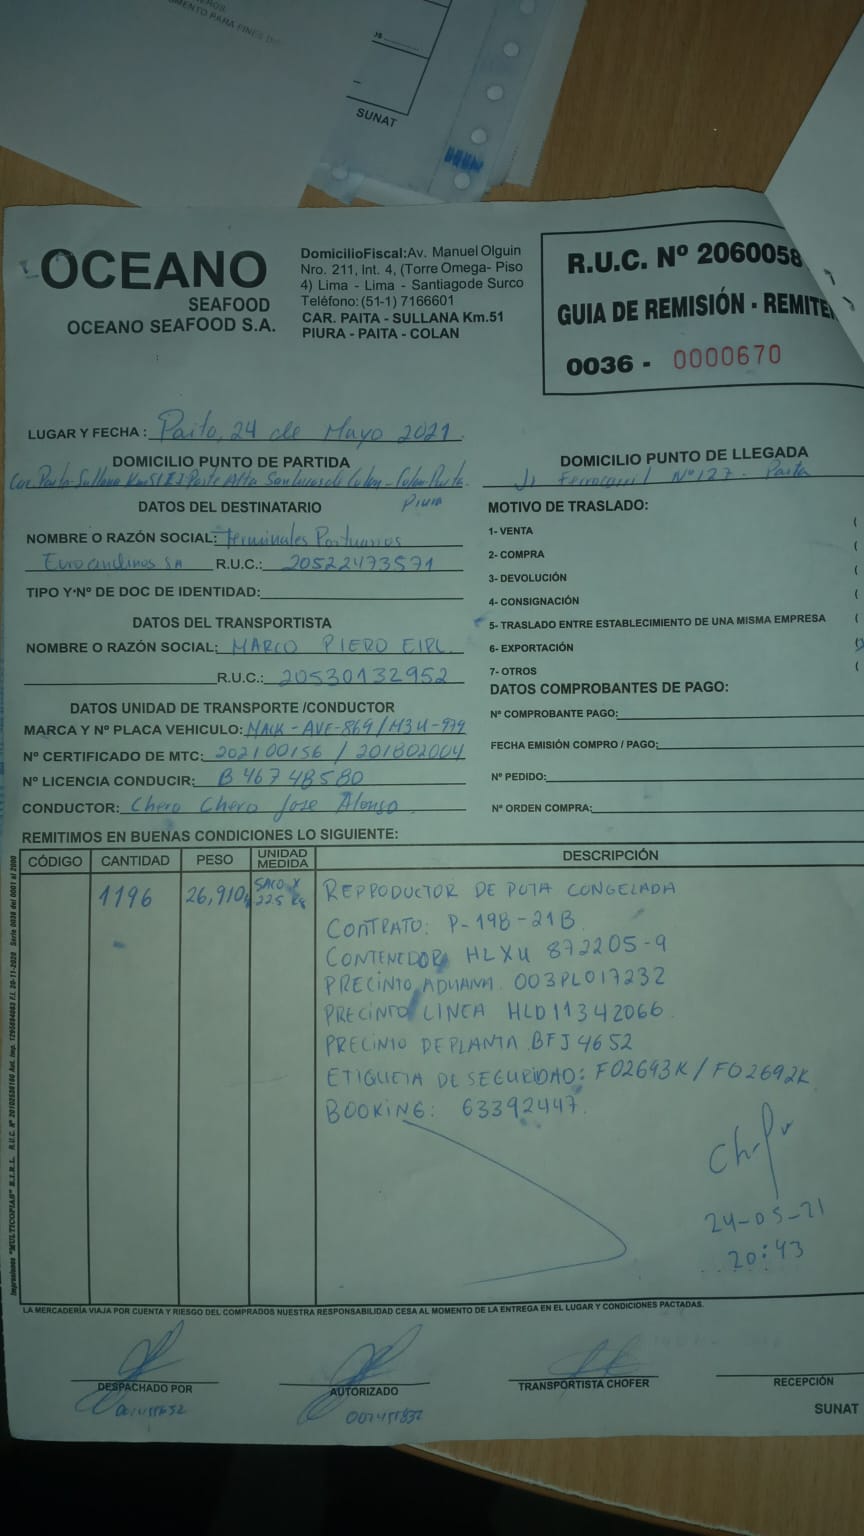 MENTO PARA FINES
SUNAT
OCEANO
SEAFOOD
OCEANO SEAFOOD S.A.
DomicilioFiscal:Av. Manuel Olguin
Nro. 211, Int. 4, (Torre Omega- Piso
4) Lima - Lima - Santiago de Surco
Teléfono: (51-1) 7166601
CAR. PAITA - SULLANA Km.51
PIURA - PAITA - COLAN
R.U.C. Nº 2060058
GUIA DE REMISIÓN - REMITE
0036 - 0000670
LUGAR Y FECHA : Paita, 24 de Mayo 2021
DOMICILIO PUNTO DE PARTIDA
Car. Paita-Sullana Km 51 Parte Alta San Lucas de Colan - Colan-Paita-
Piura
DOMICILIO PUNTO DE LLEGADA
Jr Ferrocarril Nº 127 - Paita
DATOS DEL DESTINATARIO
NOMBRE O RAZÓN SOCIAL: Terminales Portuarios
Euroandinos SA R.U.C.: 20522473571
TIPO Y Nº DE DOC DE IDENTIDAD:
DATOS DEL TRANSPORTISTA
NOMBRE O RAZÓN SOCIAL: MARCO PIERO EIRL.
R.U.C.: 20530132952
DATOS UNIDAD DE TRANSPORTE /CONDUCTOR
MARCA Y Nº PLACA VEHICULO: MACK - AVF-869 / M3U-979
Nº CERTIFICADO DE MTC: 202100156 / 201802004
Nº LICENCIA CONDUCIR: B 46748580
CONDUCTOR: Chero Chero Jose Alonso
MOTIVO DE TRASLADO:
1- VENTA (
2- COMPRA (
3- DEVOLUCIÓN (
4- CONSIGNACIÓN (
5- TRASLADO ENTRE ESTABLECIMIENTO DE UNA MISMA EMPRESA (
6- EXPORTACIÓN (X
7- OTROS (
DATOS COMPROBANTES DE PAGO:
Nº COMPROBANTE PAGO:
FECHA EMISIÓN COMPRO / PAGO:
Nº PEDIDO:
Nº ORDEN COMPRA:
REMITIMOS EN BUENAS CONDICIONES LO SIGUIENTE:
CÓDIGO CANTIDAD PESO UNIDAD MEDIDA DESCRIPCIÓN
1196 26,910 SACO X 22.5 Kg REPRODUCTOR DE POTA CONGELADA
CONTRATO: P-198-21B
CONTENEDOR HLXU 872205-9
PRECINTO ADUANA. 003PL017232
PRECINTO LINEA HLD11342066
PRECINTO DE PLANTA BFJ 4652
ETIQUETA DE SEGURIDAD: F02693K / F02692K
BOOKING: 63392447
24-05-21
20:43
LA MERCADERÍA VIAJA POR CUENTA Y RIESGO DEL COMPRADOS NUESTRA RESPONSABILIDAD CESA AL MOMENTO DE LA ENTREGA EN EL LUGAR Y CONDICIONES PACTADAS.
DESPACHADO POR
AUTORIZADO
TRANSPORTISTA CHOFER
RECEPCIÓN
SUNAT